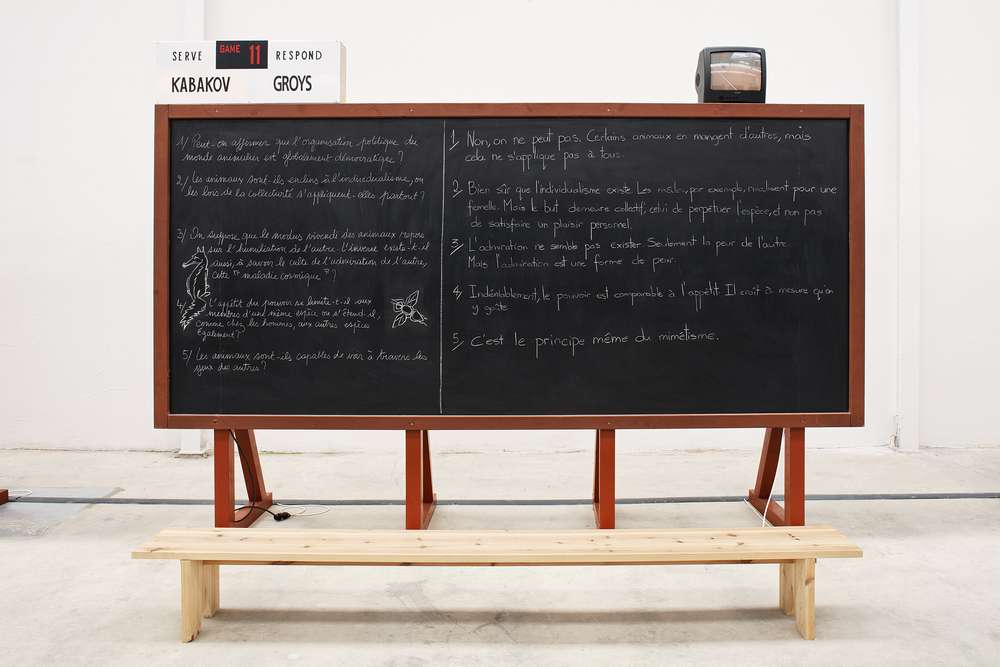 SERVE GAME 11 RESPOND
KABAKOV GROYS
1/ Peut-on affirmer que l'organisation politique du
monde animalier est globalement démocratique ?
2/ Les animaux sont-ils enclins à l'individualisme, ou
les lois de la collectivité s'appliquent-elles partout ?
3/ On suppose que le modus vivendi des animaux repose
sur l'humiliation de l'autre. L'inverse existe-t-il
aussi, à savoir le culte de l'admiration de l'autre,
cette "maladie cosmique" ?
4/ L'appétit du pouvoir se limite-t-il aux
membres d'une même espèce ou s'étend-il,
comme chez les hommes, aux autres espèces
également ?
5/ Les animaux sont-ils capables de voir à travers les
yeux des autres ?
1/ Non, on ne peut pas. Certains animaux en mangent d'autres, mais
cela ne s'applique pas à tous.
2/ Bien sûr que l'individualisme existe. Les mâles, par exemple, rivalisent pour une
femelle. Mais le but demeure collectif; celui de perpétuer l'espèce, et non pas
de satisfaire un plaisir personnel.
3/ L'admiration ne semble pas exister. Seulement la peur de l'autre.
Mais l'admiration est une forme de peur.
4/ Indéniablement, le pouvoir est comparable à l'appétit. Il croît à mesure qu'on
y goûte.
5/ C'est le principe même du mimétisme.